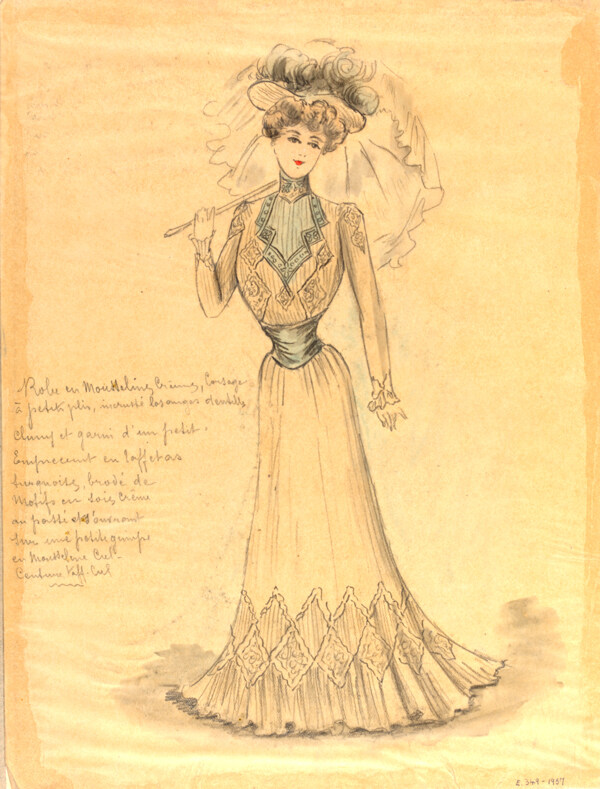 Robe en Mousseline Crème, Corsage
à petits plis, incrusté losanges dentelle
Cluny et garni d'un petit
Empiecement en Taffetas
turquoise, brodé de
Motifs en soie Crème
au passé et s'ouvrant
sur une petite guimpe
en Mousseline Ciel.
Ceinture Taff. Ciel
E.349-1957